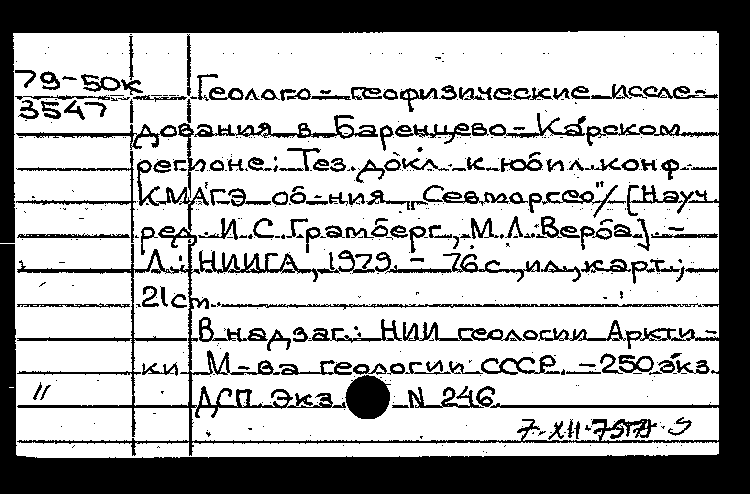 79-50к Геолого-геофизические иссле-
3547
дования в Баренцево-Карском
регионе: Тез. докл. к юбил. конф.
КМАГЭ об-ния „Севморгео"/ [Науч.
ред. И.С. Грамберг, М.Л. Верба]. -
Л.: НИИГА, 1979. - 76 с., ил., карт.;
21 см.
В надзаг.: НИИ геологии Аркти-
ки М-ва геологии СССР. - 250 экз.
" ДСП. Экз. N 246.